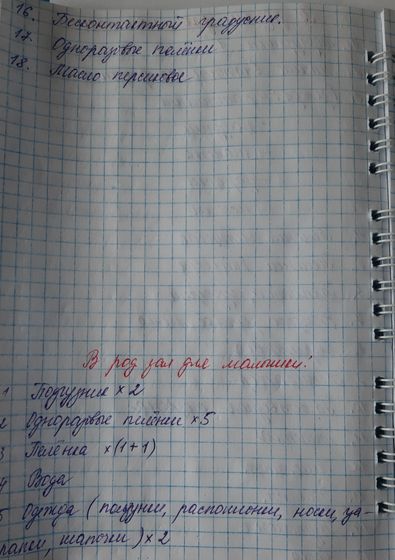 16. Бесконтактный градусник.
17. Одноразовые пелёнки
18. Масло персиковое
В род зал для малышки:
1 Подгузник x 2
2 Одноразовые пелёнки x 5
3 Пелёнка x (1+1)
4 Вода
5 Одежда (ползунки, распашонки, носки, ца-
рапки, шапочки) x 2